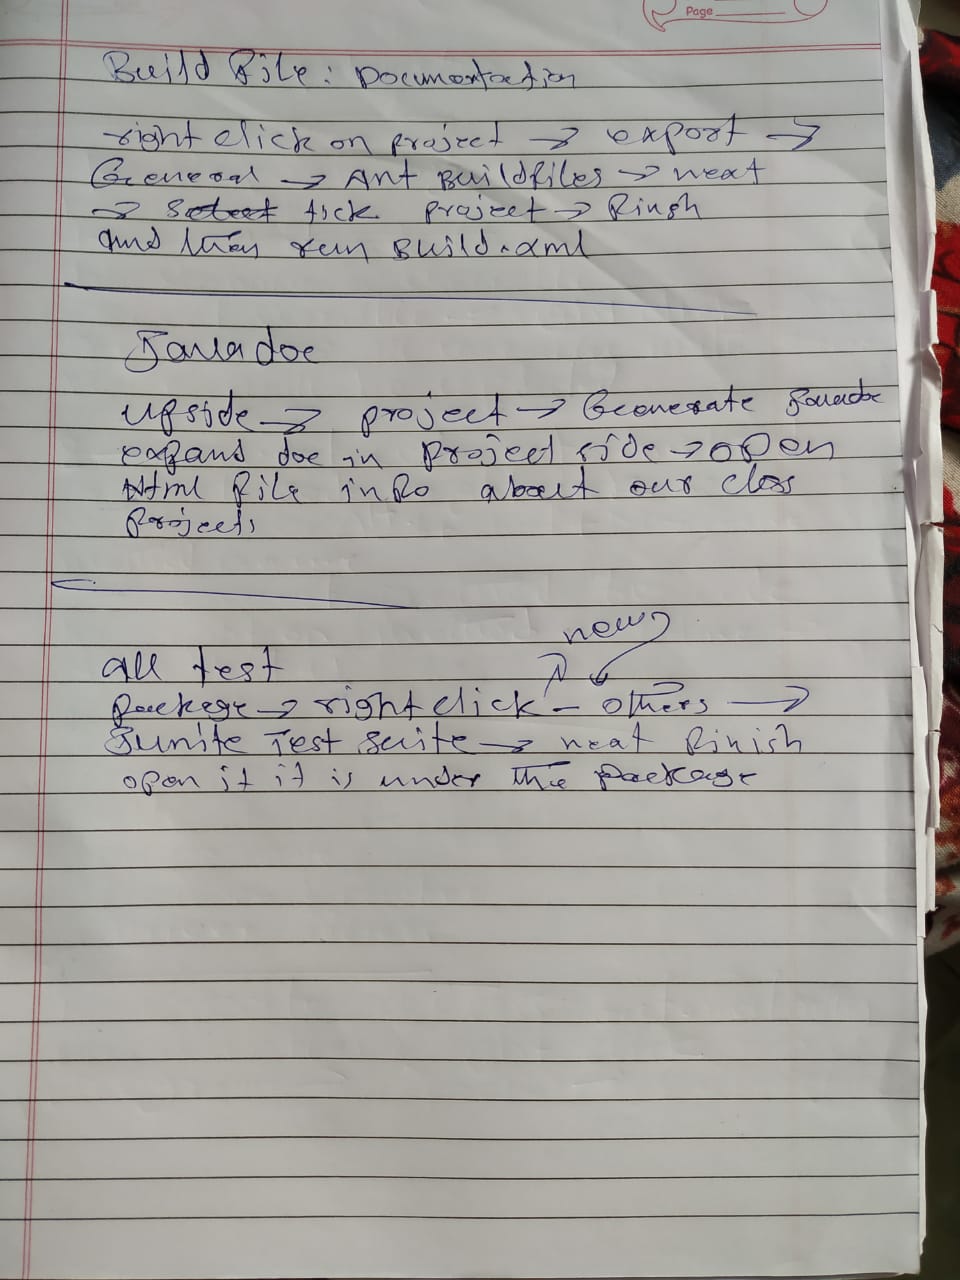 Page
Build File: Documentation
right click on project → export →
General → Ant Buildfiles → next
→ Select tick project → Finsh
And then run Build.xml
Javadoc
Upside → project → Generate Javadoc
expand doc in project side → open
html file info about our class
projects
new
all test
package → right click - others →
Junite Test Suite → next finish
open it it is under the package